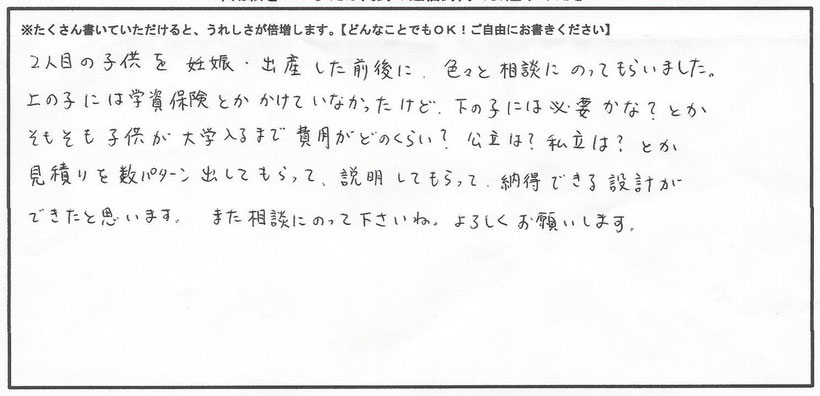 ※たくさん書いていただけると、うれしさが倍増します。【どんなことでもOK！ご自由にお書きください】
2人目の子供を 妊娠・出産した前後に、色々と相談にのってもらいました。
上の子には学資保険とかかけていなかったけど、下の子には必要かな？とか
そもそも子供が大学入るまで費用がどのくらい？公立は？私立は？とか
見積りを数パターン出してもらって、説明してもらって、納得できる設計が
できたと思います。 また相談にのって下さいね。よろしくお願いします。